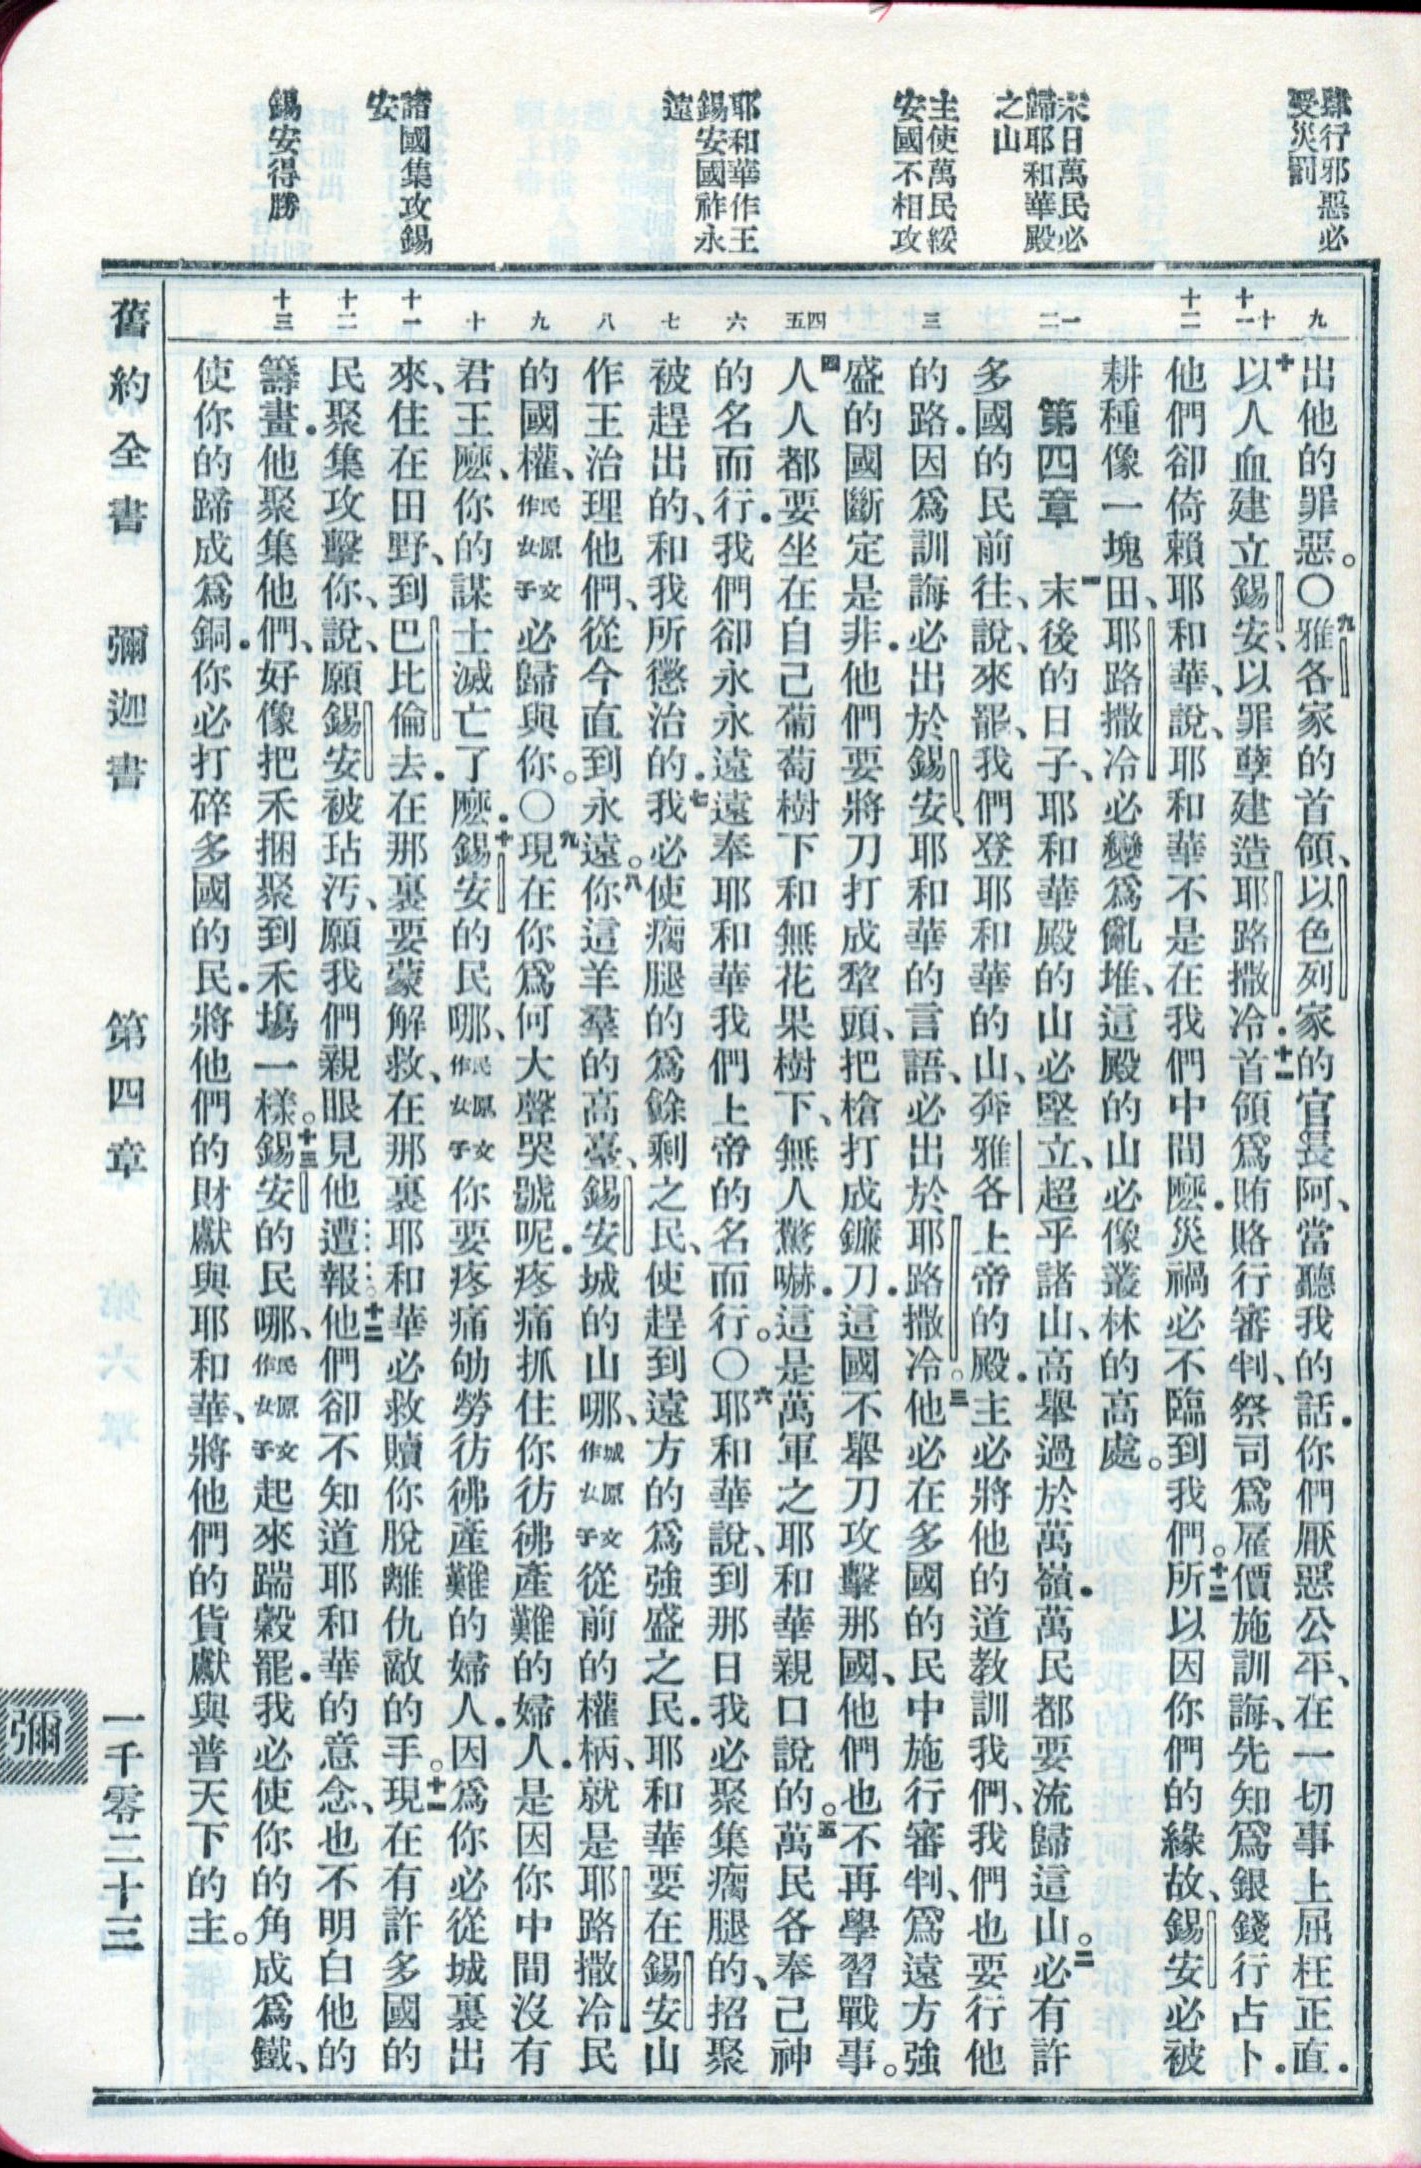 肆行邪惡必
受災罰
末日萬民必
歸耶和華殿
之山
主使萬民綏
安國不相攻
耶和華作王
錫安國祚永
遠
諸國集攻錫
安
錫安得勝
九
十
十一
十二
一
二
三
四
五
六
七
八
九
十
十一
十二
十三
出他的罪惡。〇九雅各家的首領、以色列家的官長阿、當聽我的話.你們厭惡公平、在一切事上屈枉正直.
十以人血建立錫安、以罪孽建造耶路撒冷.十一首領爲賄賂行審判、祭司爲雇價施訓誨、先知爲銀錢行占卜.
他們卻倚賴耶和華、說、耶和華不是在我們中間麽.災禍必不臨到我們。十二所以因你們的緣故、錫安必被
耕種像一塊田、耶路撒冷必變爲亂堆、這殿的山必像叢林的高處。
第四章 一末後的日子、耶和華殿的山必堅立、超乎諸山、高舉過於萬嶺.萬民都要流歸這山。二必有許
多國的民前往、說、來罷、我們登耶和華的山、奔雅各上帝的殿.主必將他的道教訓我們、我們也要行他
的路.因爲訓誨必出於錫安、耶和華的言語、必出於耶路撒冷。三他必在多國的民中施行審判、爲遠方強
盛的國斷定是非.他們要將刀打成犂頭、把槍打成鐮刀.這國不舉刀攻擊那國、他們也不再學習戰事。
四人人都要坐在自己葡萄樹下和無花果樹下、無人驚嚇.這是萬軍之耶和華親口說的。五萬民各奉己神
的名而行.我們卻永永遠遠奉耶和華我們上帝的名而行。〇六耶和華說、到那日我必聚集瘸腿的、招聚
被趕出的、和我所懲治的.七我必使瘸腿的爲餘剩之民、使趕到遠方的爲強盛之民.耶和華要在錫安山
作王治理他們、從今直到永遠。八你這羊羣的高臺、錫安城的山哪、城原文作女子從前的權柄、就是耶路撒冷民
的國權、民原文作女子必歸與你。〇九現在你爲何大聲哭號呢.疼痛抓住你彷彿產難的婦人.是因你中間沒有
君王麽、你的謀士滅亡了麽.十錫安的民哪、民原文作女子你要疼痛劬勞彷彿產難的婦人.因爲你必從城裏出
來、住在田野、到巴比倫去.在那裏要蒙解救、在那裏耶和華必救贖你脫離仇敵的手。十一現在有許多國的
民聚集攻擊你、說、願錫安被玷汚、願我們親眼見他遭報。十二他們卻不知道耶和華的意念、也不明白他的
籌畫.他聚集他們、好像把禾捆聚到禾塲一樣。十三錫安的民哪、民原文作女子起來踹穀罷.我必使你的角成爲鐵、
使你的蹄成爲銅.你必打碎多國的民.將他們的財獻與耶和華、將他們的貨獻與普天下的主。
舊約全書 彌迦書 第四章 一千零二十三
彌